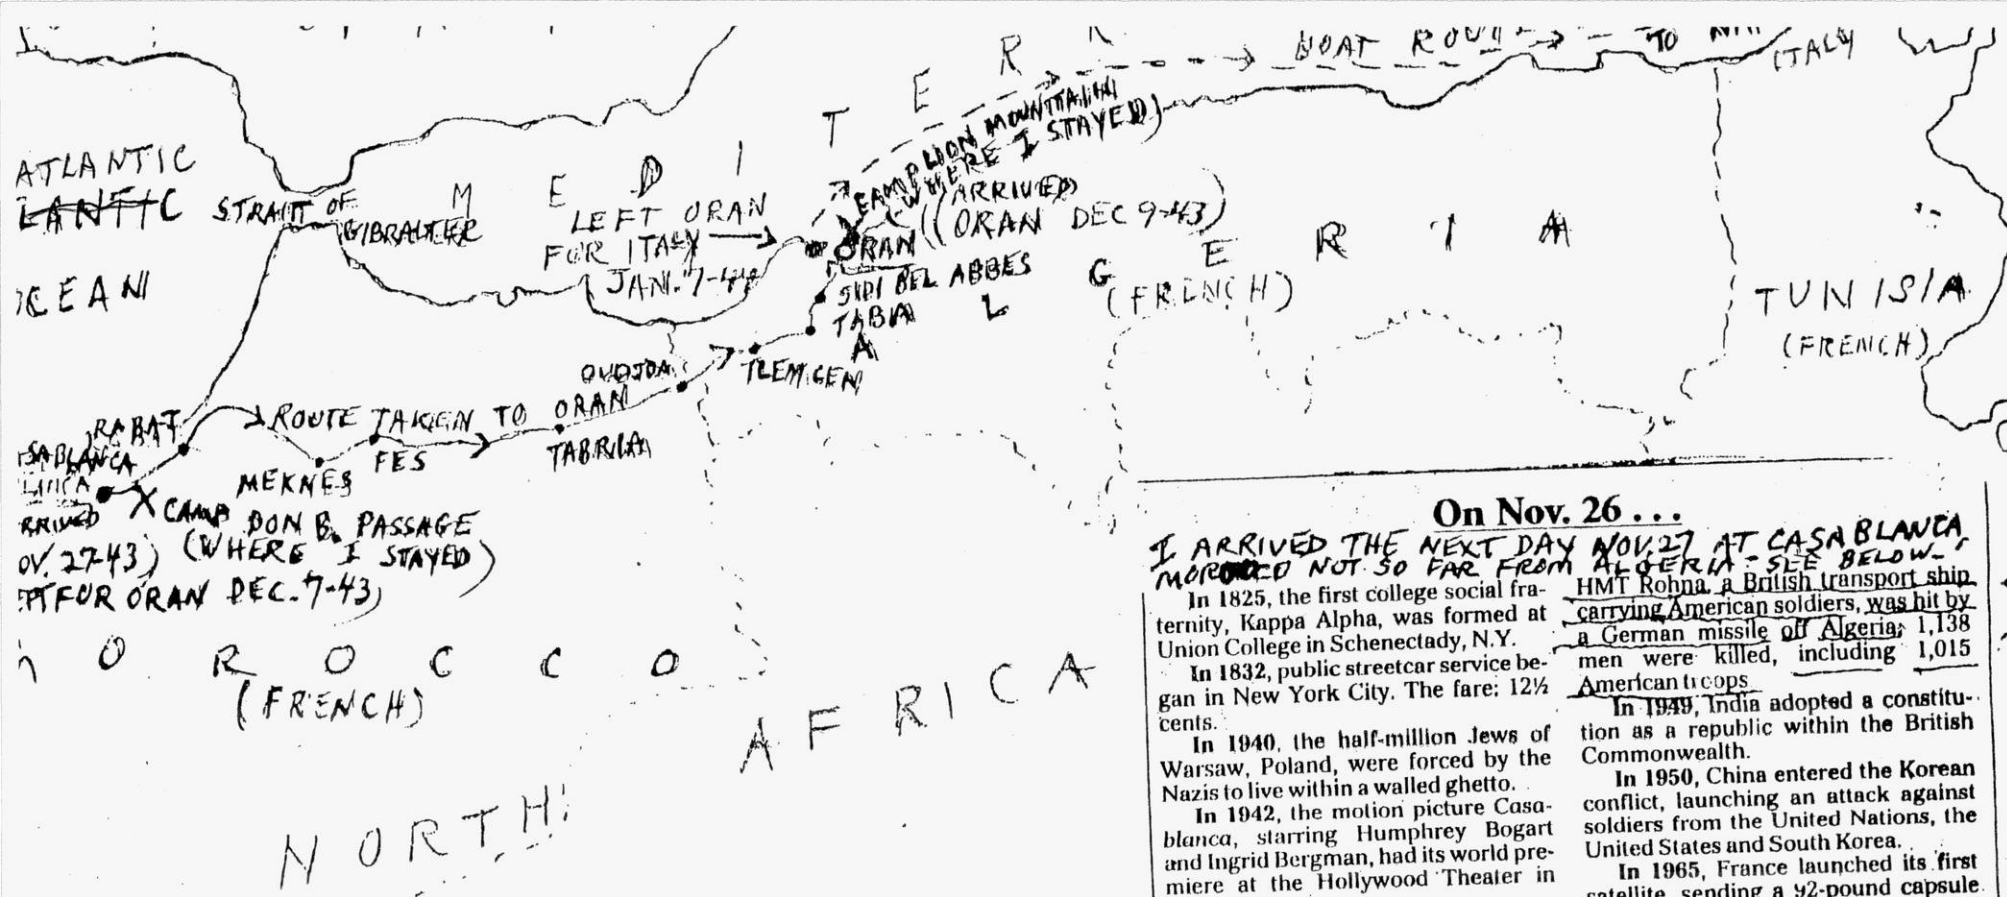 BOAT ROUTE TO
ITALY
M E D I T E R R
ATLANTIC
LANTIC
OCEAN
STRAIT OF
GIBRALTER
LEFT ORAN
FOR ITALY
JAN. 7-44
CAMP LION MOUNTTAIN
(WHERE I STAYED)
(ARRIVED
(ORAN DEC 9-43)
ORAN
SIDI BEL ABBES
TABIA
TLEMCEN
A L G E R I A
(FRENCH)
TUNISIA
(FRENCH)
OUDJDA
ROUTE TAKEN TO ORAN
RABAT
SABLANCA
MEKNES
FES
TABRILA
RRIVED
OV. 27-43)
CAMP DON B. PASSAGE
(WHERE I STAYED)
FT FOR ORAN DEC. 7-43)
O R O C C O
(FRENCH)
NORTH
AFRICA
On Nov. 26 . . .
I ARRIVED THE NEXT DAY NOV. 27 AT CASABLANCA
MOROCCO NOT SO FAR FROM ALGERIA - SEE BELOW -
In 1825, the first college social fra-
ternity, Kappa Alpha, was formed at
Union College in Schenectady, N.Y.
In 1832, public streetcar service be-
gan in New York City. The fare: 12½
cents.
In 1940, the half-million Jews of
Warsaw, Poland, were forced by the
Nazis to live within a walled ghetto.
In 1942, the motion picture Casa-
blanca, starring Humphrey Bogart
and Ingrid Bergman, had its world pre-
miere at the Hollywood Theater in
HMT Rohna, a British transport ship
carrying American soldiers, was hit by
a German missile off Algeria; 1,138
men were killed, including 1,015
American troops
In 1949, India adopted a constitu-
tion as a republic within the British
Commonwealth.
In 1950, China entered the Korean
conflict, launching an attack against
soldiers from the United Nations, the
United States and South Korea.
In 1965, France launched its first
satellite, sending a 92-pound capsule